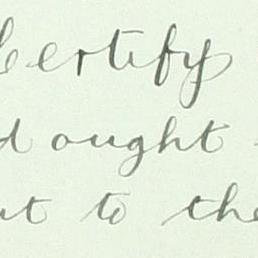 Certify
d ought
ut to the